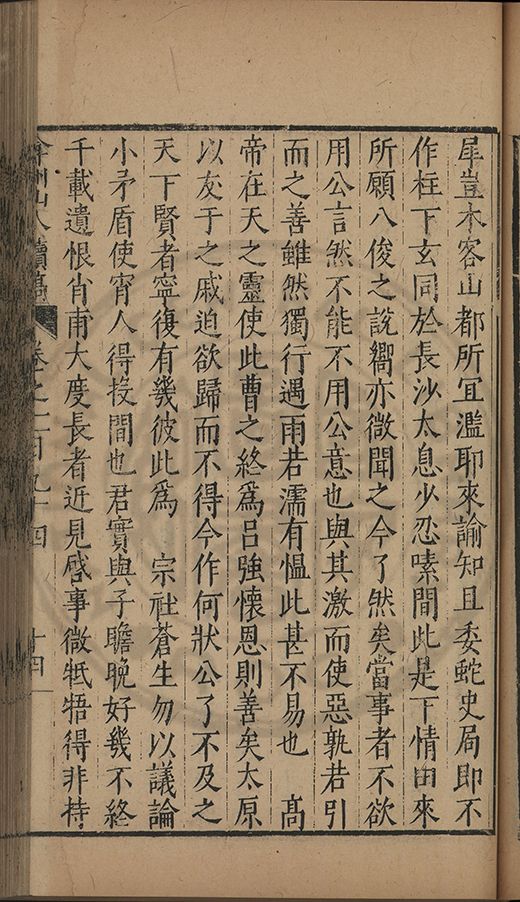 犀豈木客山都所宜濫耶來諭知且委蛇史局即不
作柱下玄同於長沙太息少忍嗉間此是下情由來
所願八俊之說嚮亦微聞之今了然矣當事者不欲
用公言然不能不用公意也與其激而使惡孰若引
而之善雖然獨行遇雨若濡有慍此甚不易也 高
帝在天之靈使此曹之終爲呂強懷恩則善矣太原
以友于之戚迫欲歸而不得今作何狀公了不及之
天下賢者寧復有幾彼此爲 宗社蒼生勿以議論
小矛盾使宵人得投間也君實與子瞻晚好幾不終
千載遺恨肖甫大度長者近見啓事微牴牾得非持
弇州山人續稿 卷之一百九十四 十四